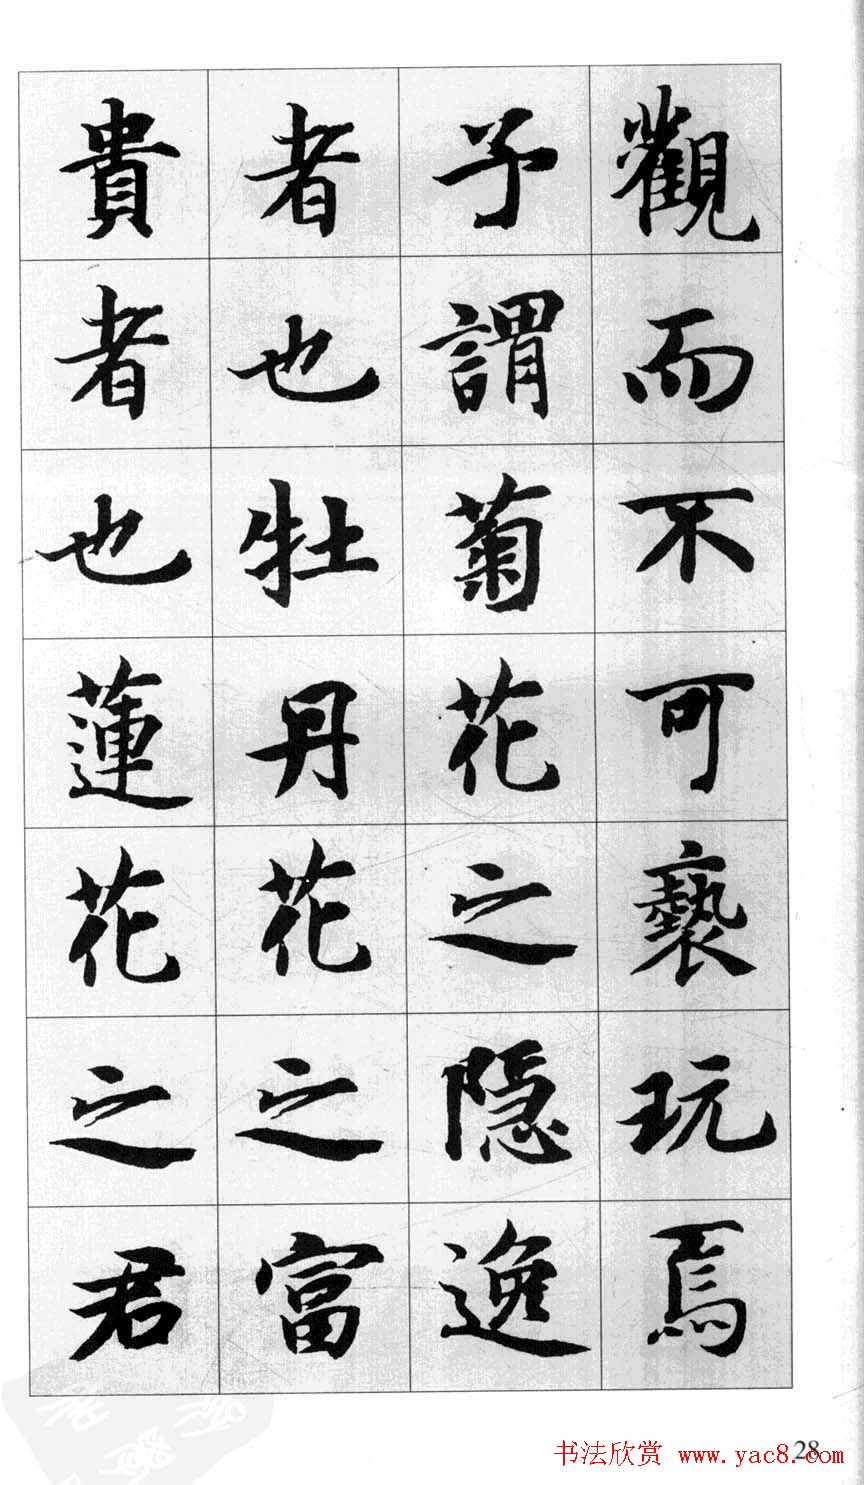 觀而不可褻玩焉
予謂菊花之隐逸
者也牡丹花之富
貴者也蓮花之君
28
书法欣赏 www.yac8.com